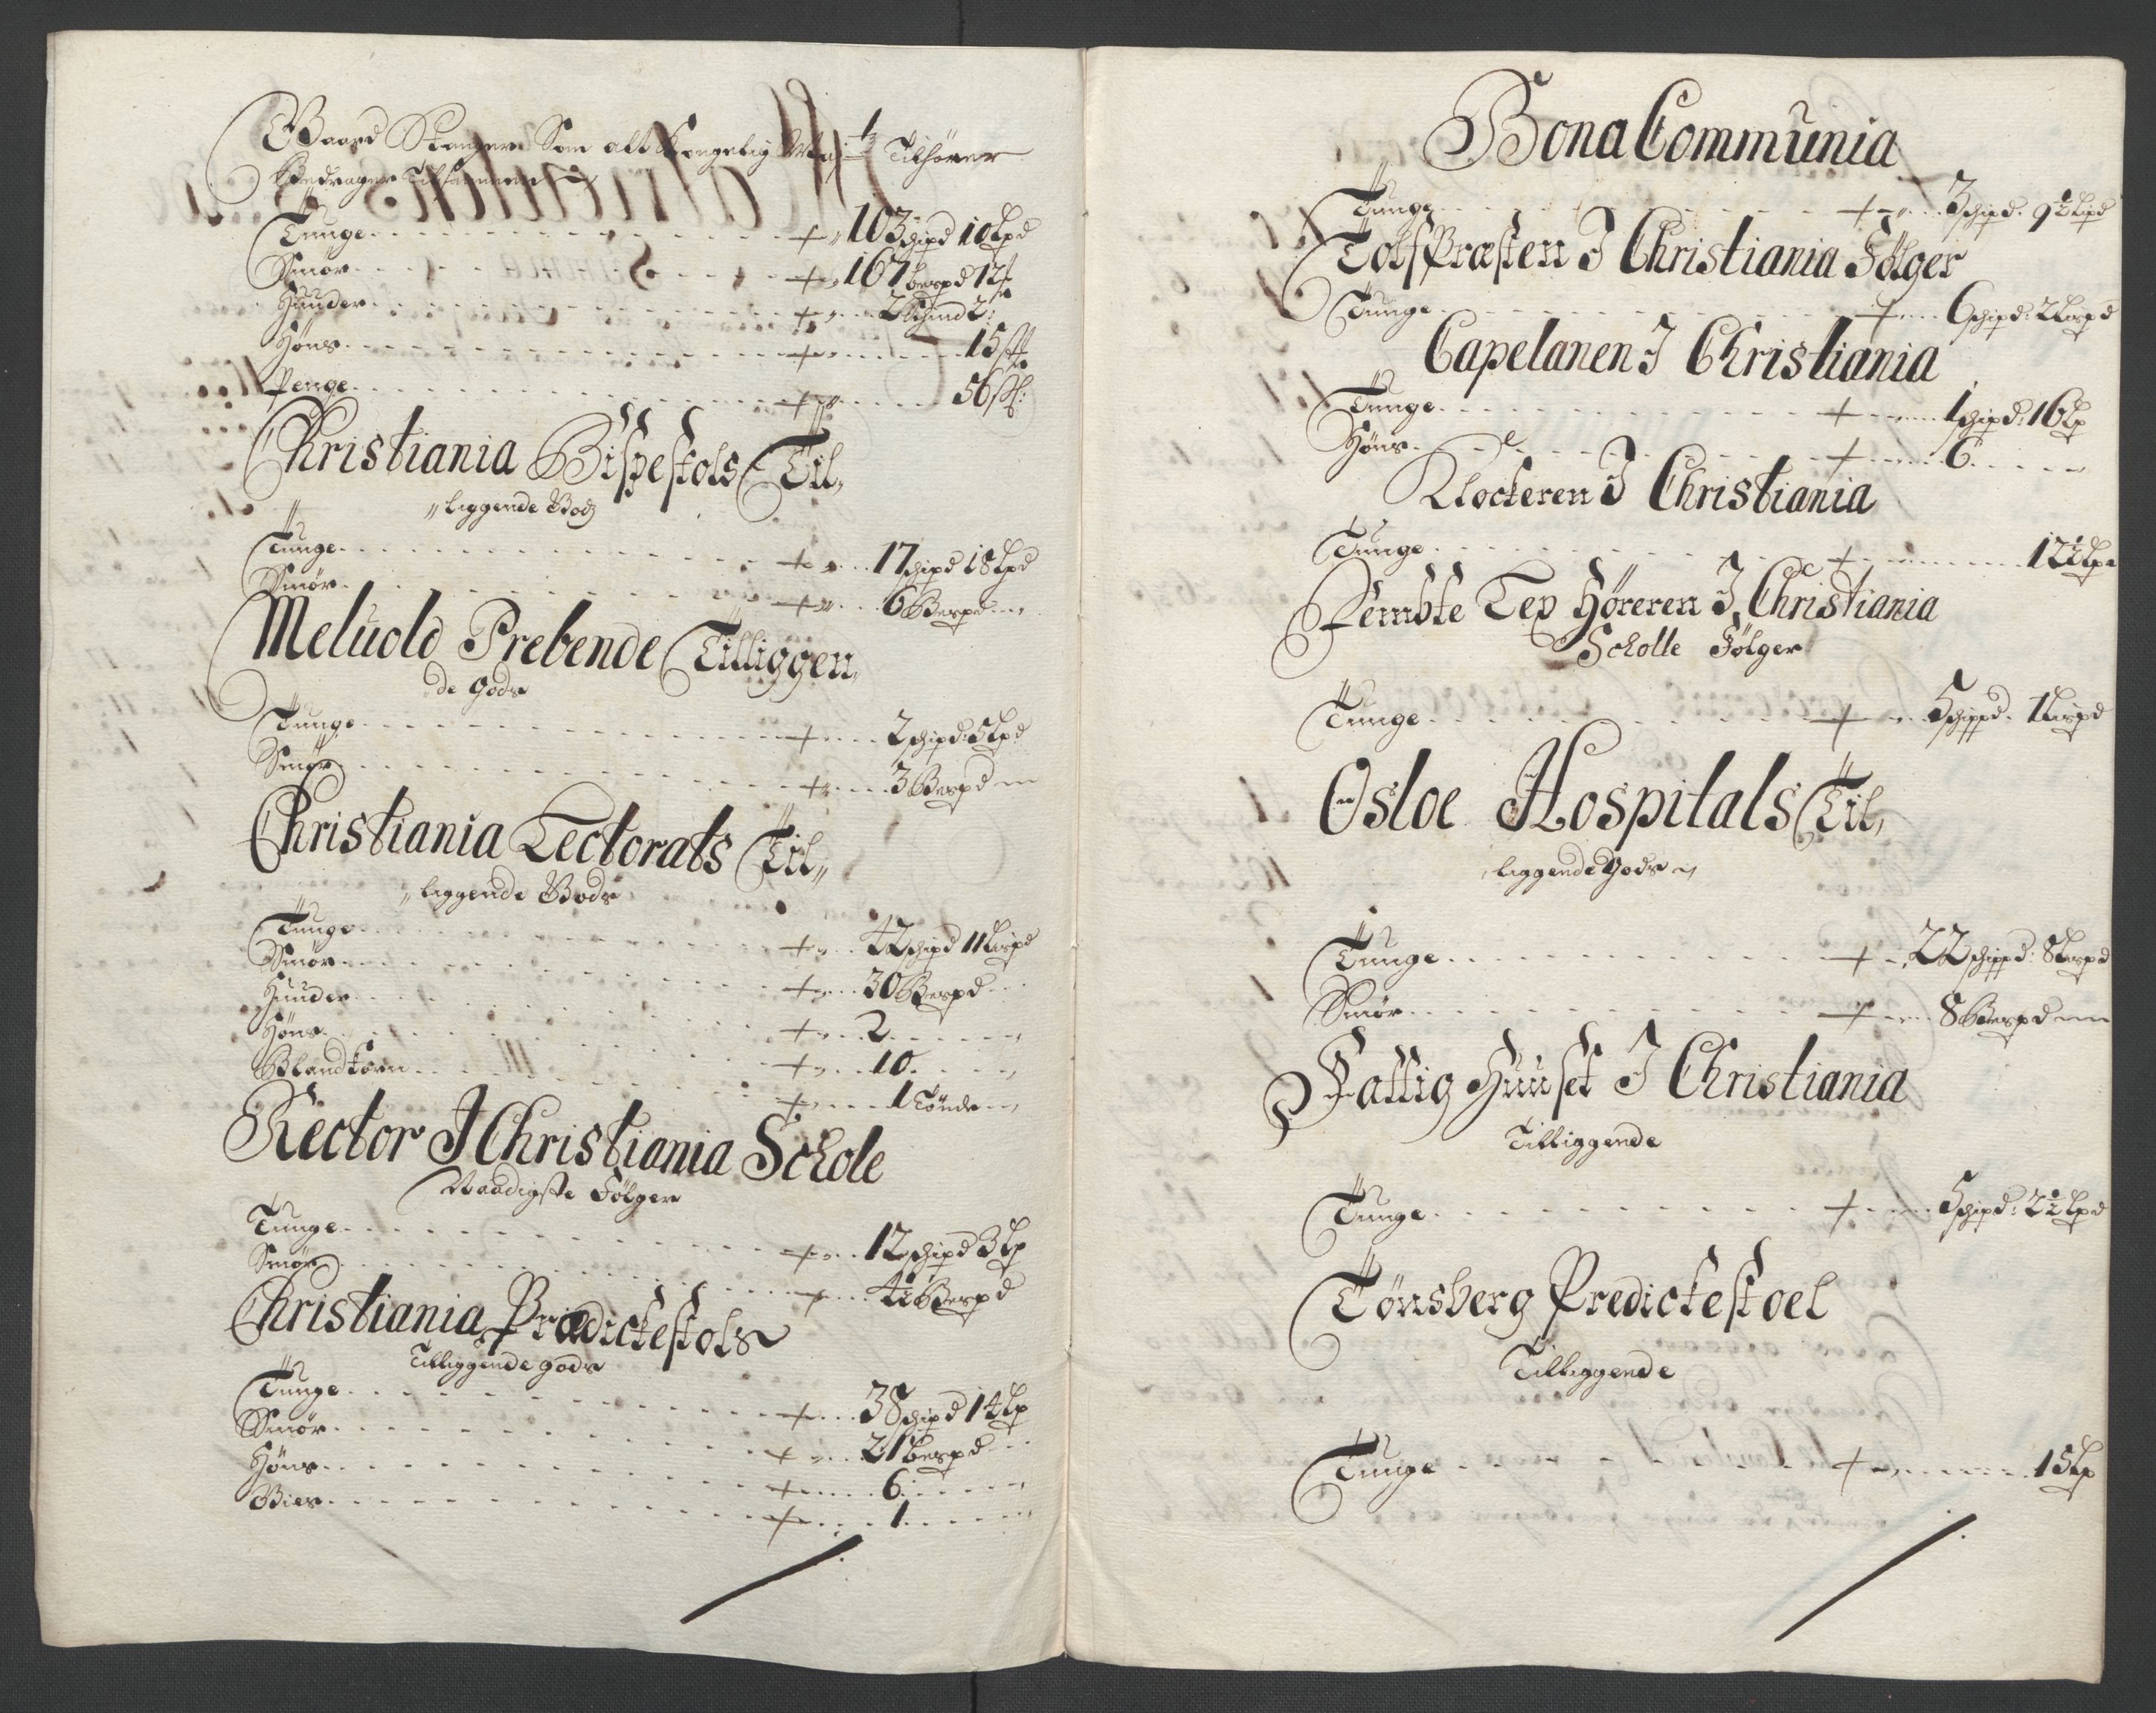 Gaard Stanger Som alt Kongelig May: tz Tilhører
Bedrager Tilsammen
Tunge + 103 schipd 10 Lpd
Smør + 167 bespd 12 ₶
Huuder + 2 Schind 2:
Høns + 15 st
Penge + 56 sk:
Christiania Bispestols Til,,
,,liggende Godz
Tunge + 17 schipd 18 Lpd
Smør + 6 Bespd
Meluold Prebende Tilliggen,,
de Gods
Tunge + 2 schipd: 5 Lpd
Smør + 3 Bespd
Christiania Lectorats Til,,
,,liggende Gods
Tunge + 42 schipd 11 Lispd
Smør + 30 Bespd
Huuder + 2
Høns + 10
Blandkorn + 1 Tønde
Rector J Christiania Schole
Naadigste Følger
Tunge + 12 schipd 3 Lp
Smør + 4½ Bespd
Christiania Prædickestols
Tilliggende gods
Tunge + 38 schipd 14 Lp
Smør + 21 bespd
Høns + 6
Bier + 1
Bona Communia
Tunge + 3 schipd. 9½ Lispd
Tolfpræsten J Christiania Følger
Tunge + 6 schipd: 2 Lispd
Capelanen J Christiania
Tunge + 1 schipd: 16 Lp
Høns + 6
Klockeren J Christiania
Tunge + 12½ Lpd
Fembte Lex Høreren J Christiania
Scholle Følger
Tunge + 5 schippd. 1 Lispd
Osloe Hospitals Til,,
liggende Gods
Tunge + 22 schippd: 8 Lispd
Smør + 8 Bespd
Fattig Huuset J Christiania
Tilliggende
Tunge + 5 schipd: 2½ Lpd
Tønsberg Predickestoel
Tilliggende
Tunge + 15 Lp